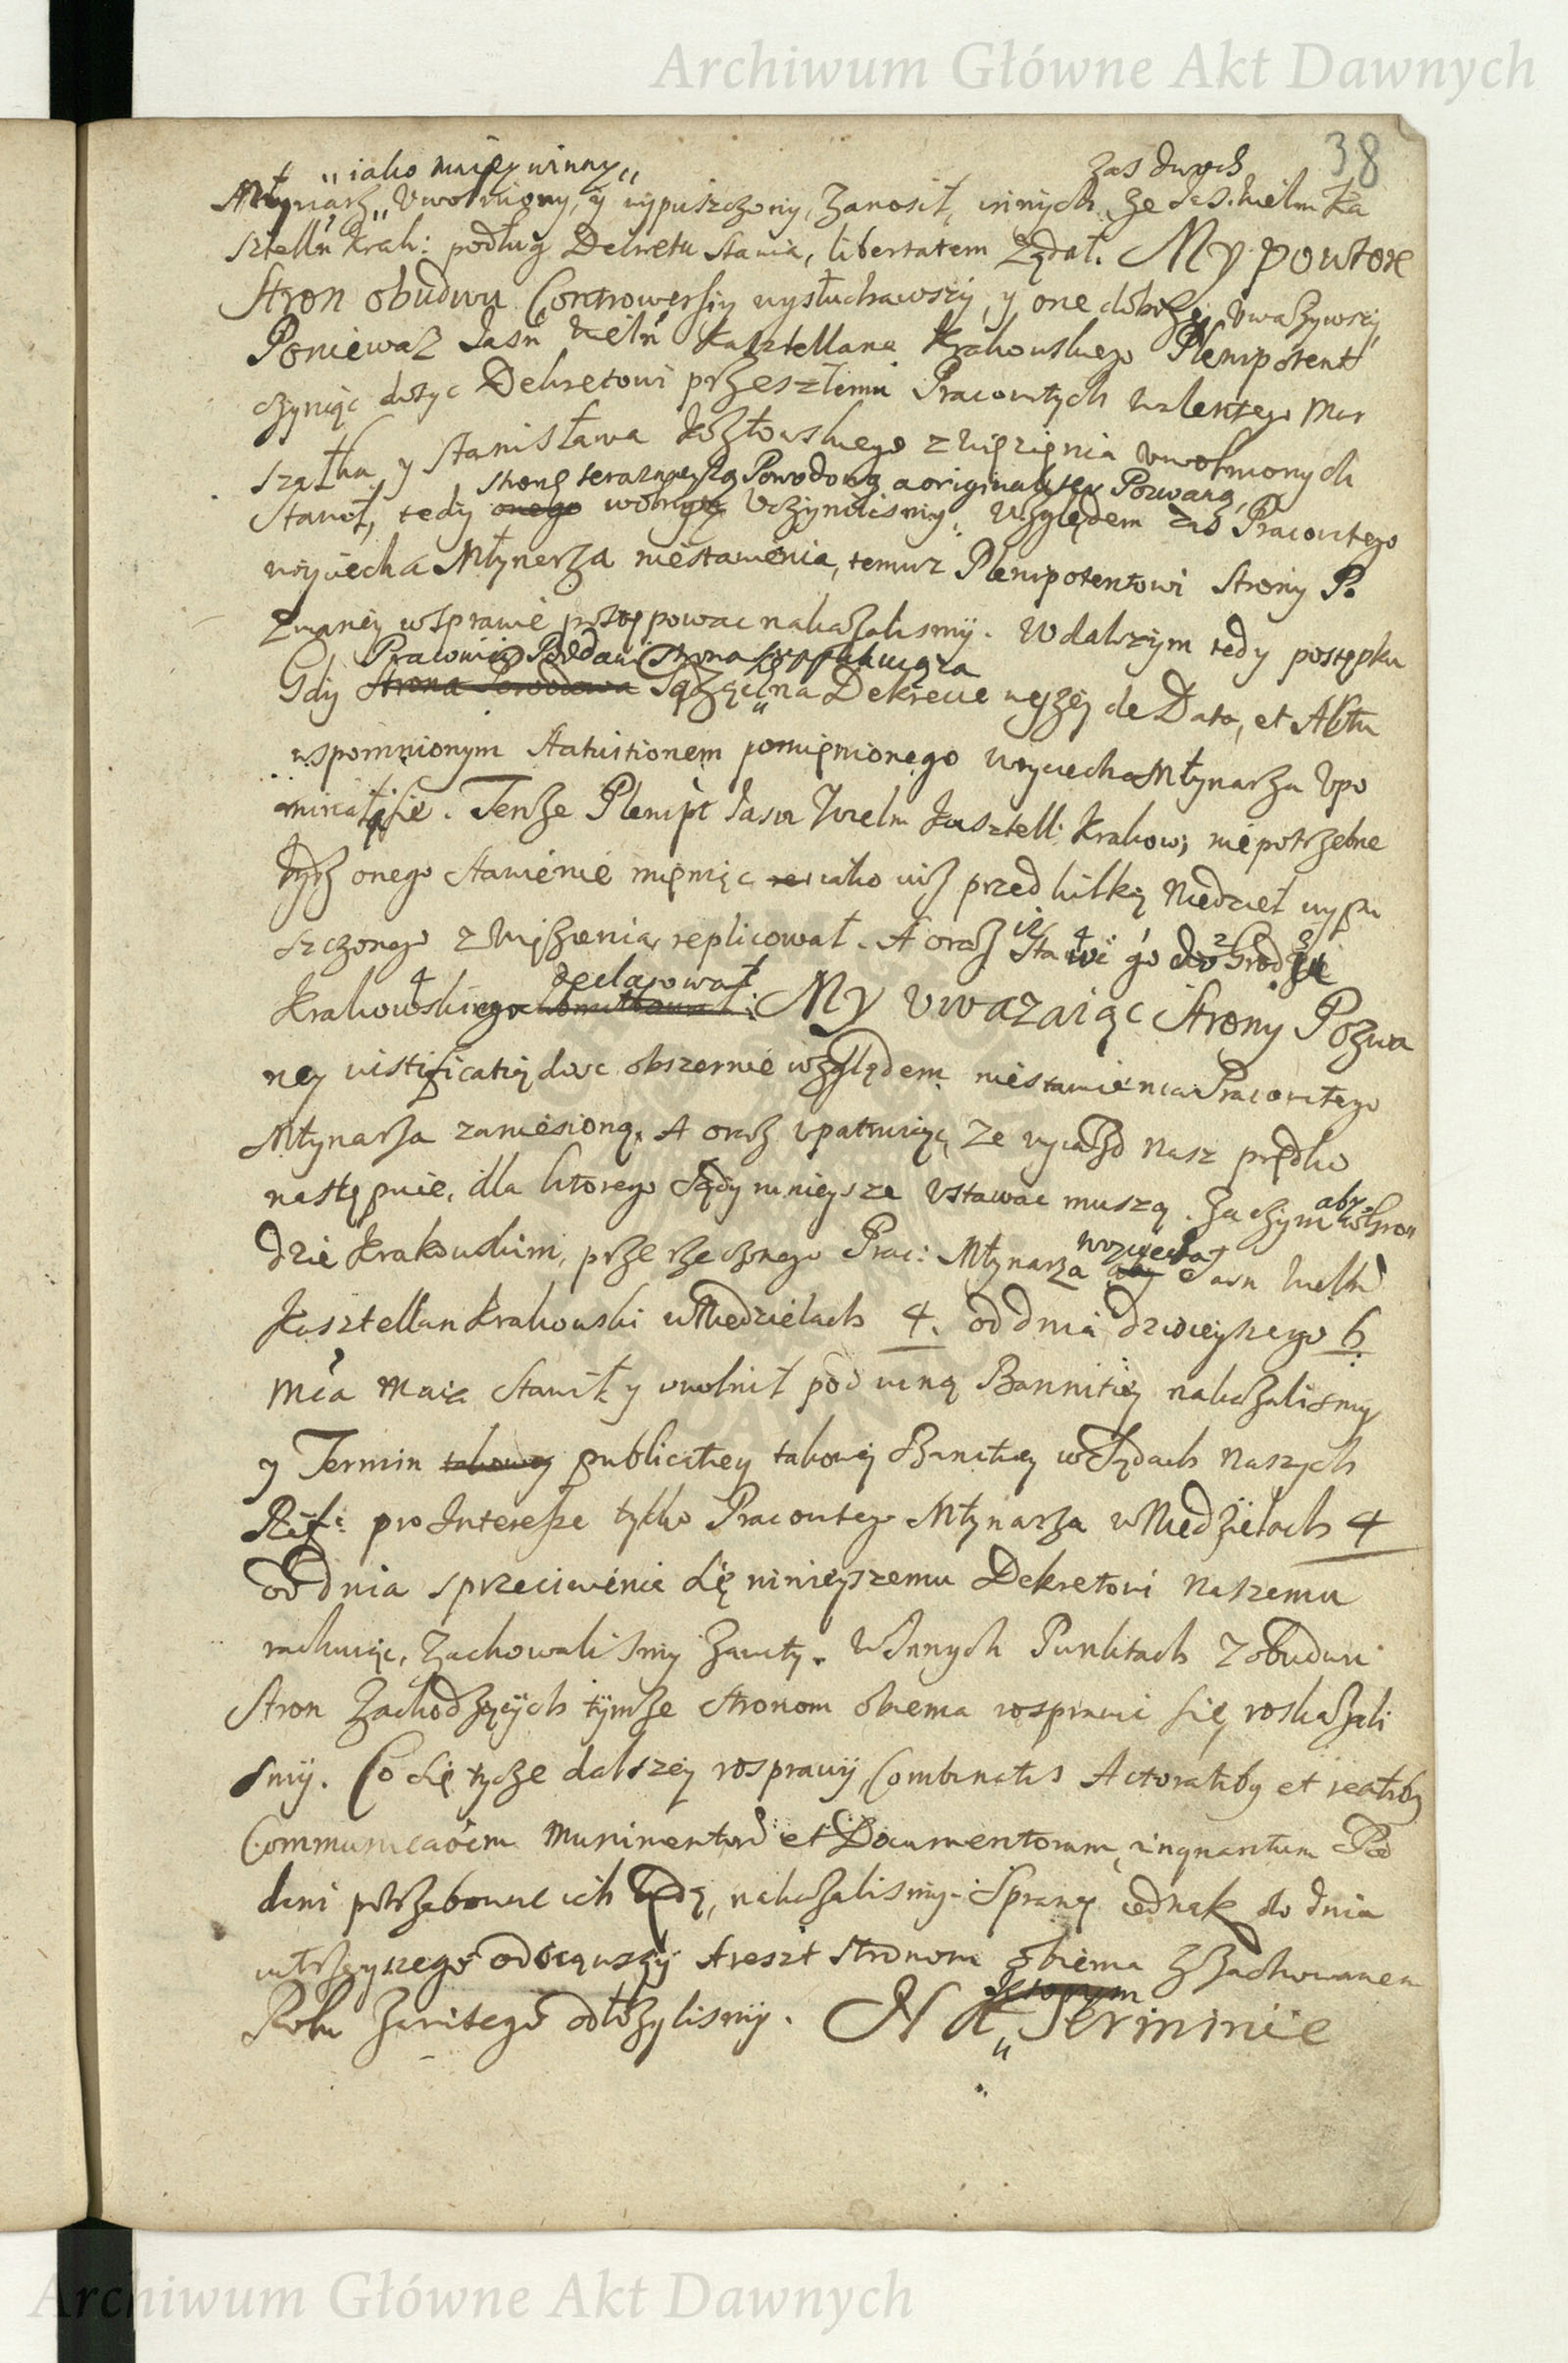 Archiwum Główne Akt Dawnych
38
"iako mniey winny" zas dwoch
Młynarz " Vwolniony, y wypuszczony, zanosił, innych ze Jas. Wielm Ka
sztelln Krak: podług Dekretu stawia, libertatem żądał. My powtore
Stron obudwu Controwersiy wysłuchawszy, y one dobrze vwazywszy,
Poniewaz Jasń Wielń Kasztellana Krakowskiego Plenipotent
czyniąc dosyc Dekretowi przeszłemu Pracowitych Walentego Mar
szałka y Stanisława Kozłowskiego z więzięnia vwolnionych
stronę teraznieyszą Powodową a originaliter Pozwaną,
Stawił, tedy onego wolnym Vczynilismy. Względem zas Pracowitego
Woyciecha Młynarza niestawienia, temuz Plenipotentowi Strony Po
zwaney w sprawie postępowac nakazalismy. W dalszym tedy postępku
Pracowici Poddani Strona
Gdy Strona Powodowa Sądząc " na Dekrecie wyzey de Data, et Actu
wspomnionym statuitionem pomięnionego Woyciecha Młynarza Vpo
minał się. Tenze Plenipt Jasn Wielm Kasztell: Krakow; niepotrzebne
iuz onego stawienie mięniąc iako iuz przed kilką Niedziel wypu
szczonego z więzienia, replicował. A oraz iz 4 2 3
Stawic go do Grodzie
4 declarował
Krakowskiego : My vwazaiąc Strony Pozwa
ney iustificatią dosc obszernie względem niestawienia Pracowitego
Młynarza zaniesioną. A oraz vpatruiąc, ze wyiazd nasz prędko
następuie, dla ktorego Sądy ninieysze Vstawac muszą. Zaczym aby w Gro
dzie Krakowskim, przerzeczonego Prac: Młynarza Woyciecha aby Jasn Wielń
Kasztellan Krakowski w Niedzielach 4. od dnia dzisieyszego 6
Mca Maia stawił y vwolnił pod winą Bannitiey nakazalismy
y Termin takowey publicatiey takowey Banitiey w Sądach naszych
Ref: pro Interesse tylko Pracowitego Młynarza w Niedzielach 4
od dnia sprzeciwienia się ninieyszemu Dekretowi naszemu
rachuiąc, zachowalismy zawity. W Innych Punktach z obudwu
Stron zachodzących tymze stronom obiema rosprawic się roskazali
smy. Co się tycze dalszey rosprawy, Combinatis Actoratiby et reatiby
Communicaoem Munimentord et Documentorum, inquantum Pod
dani potrzebowac ich będą, nakazalismy. Sprawę iednak do dnia
iutrzeyszego odciąwszy Areszt stronom obiema z zachowaniem
Roku zawitego odłozylismy. Na " Ktorym Terminie
Archiwum Główne Akt Dawnych